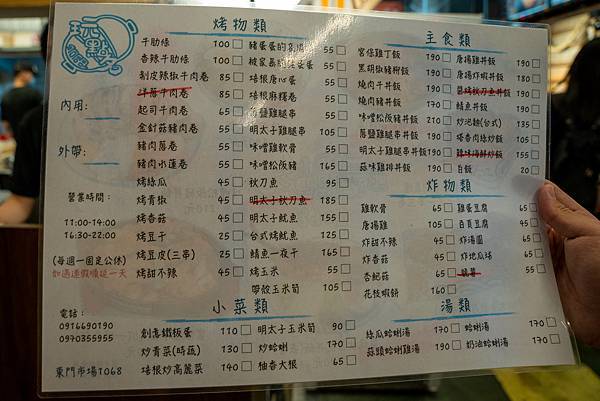 玩點
內用：
外帶：
營業時間：
11:00-14:00
16:30-22:00
(每週一固定公休)
如遇連假順延一天
電話：
0916690190
0970355955
東門市場1068
烤物類
牛肋條 100
香辣牛肋條 100
剝皮辣椒牛肉卷 85
洋蔥牛肉卷
起司牛肉卷 65
金針菇豬肉卷 55
豬肉蔥卷 55
豬肉水蓮卷 55
烤絲瓜 45
烤青椒 45
烤香菇 45
烤豆干 25
烤豆皮(三串) 45
烤甜不辣 45
55
被家暴的 55
培根唐心蛋 55
培根麻糬卷 55
蔥鹽雞腿串 55
明太子雞腿串 105
味噌雞軟骨 55
味噌松阪豬 165
秋刀魚 95
明太子秋刀魚 185
明太子魷魚 155
台式烤魷魚 125
鯖魚一夜干 165
烤玉米 55
帶殼玉米筍 55
主食類
宮保雞丁飯 190
黑胡椒豬柳飯 190
燒肉牛丼飯 190
燒肉豬丼飯 170
味噌松阪丼飯 210
蔥鹽雞腿串丼飯 190
明太子雞腿串丼飯 190
蒜味雞排丼飯 190
唐揚雞丼飯 190
唐揚炸蝦丼飯 180
鹽烤秋刀魚丼飯 190
鯖魚丼飯 170
炒泡麵(台式) 135
塔香肉絲炒飯 105
辣味海鮮炒飯 155
白飯 20
炸物類
雞軟骨 65
唐揚雞 105
炸甜不辣 45
炸香菇 45
杏鮑菇 65
花枝蝦餅 160
雞蛋豆腐 65
百頁豆腐 45
炸湯圓 65
炸地瓜球 65
脆薯 55
小菜類
創意鐵板蛋 110
炒青菜(時蔬) 130
培根炒高麗菜 140
明太子玉米筍 90
炒蛤蜊 170
柚香大根 65
湯類
絲瓜蛤蜊湯 170
蒜頭蛤蜊雞湯 190
蛤蜊湯 170
奶油蛤蜊湯 170